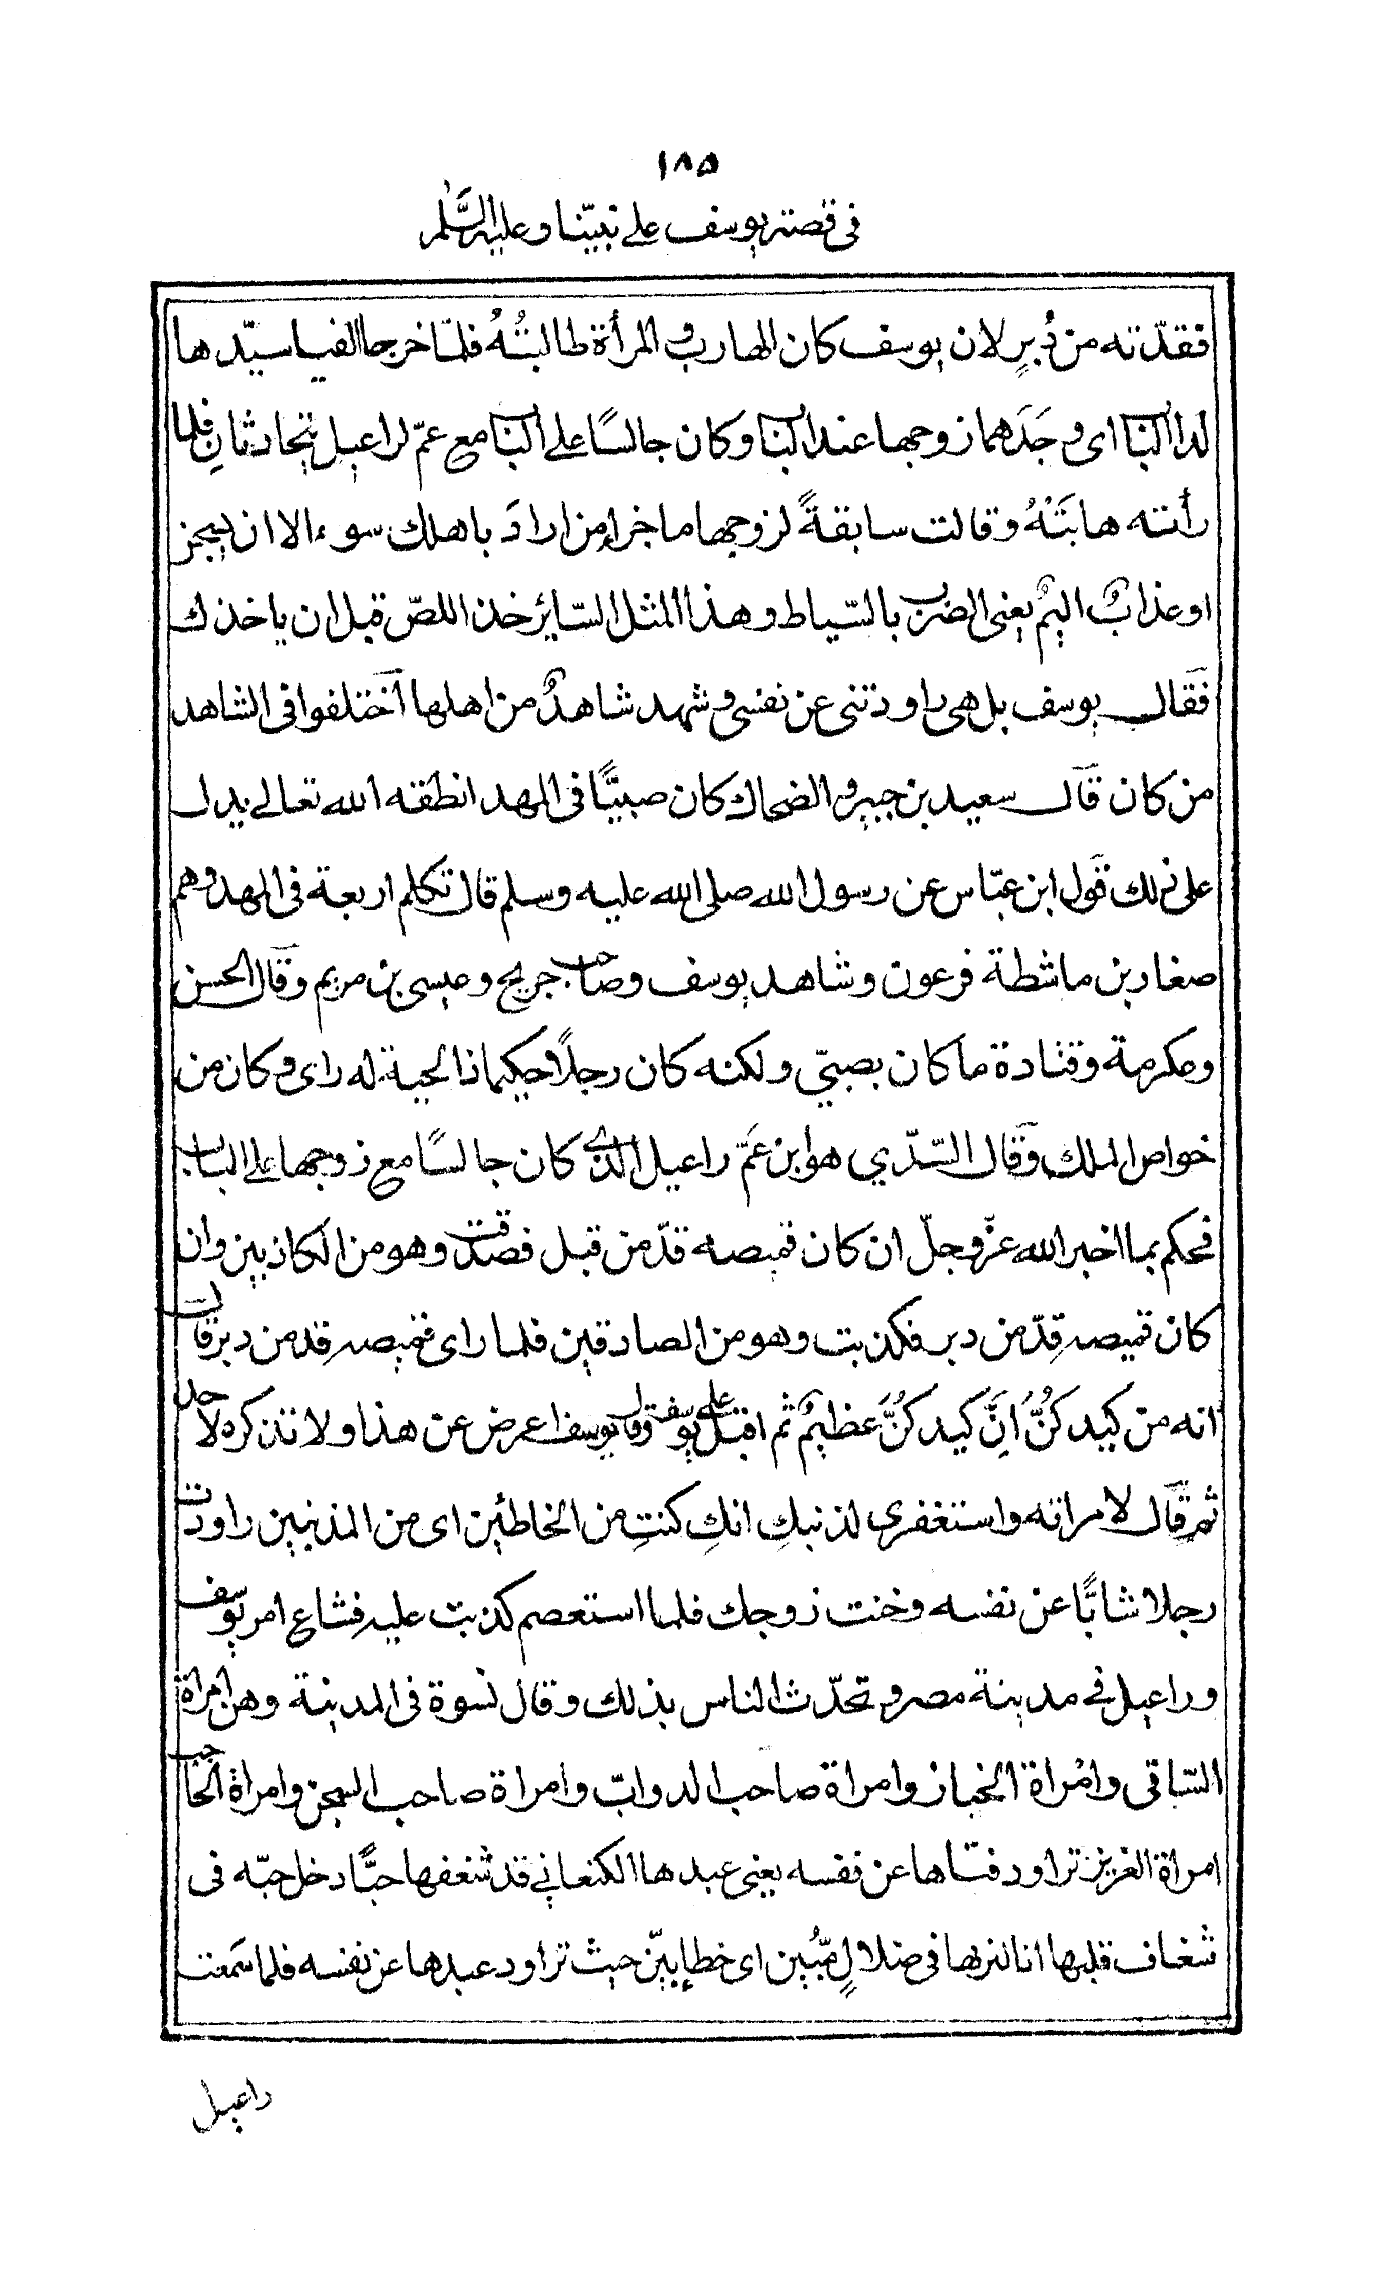 ١٨٥
فى قصته يوسف على نبيّنا وعليه السّلم
فقدّته من دُبرٍ لان يوسف كان الهارب والمرأة طالبتُهُ فلمّا خرجا الفيا سيّدها
لدا الباب اى وجَدَهما زوجها عند الباب وكان جالسًا على الباب مع عمّ لراعيل يتحادثانِ فلما
رأته هابَتْهُ وقالت سابقةً لزوجها ما جزاء من ارادَ باهلك سوء الا ان يسجن
او عذابٌ اليمٌ يعنى الضرب بالسّياط وهذا المثل السّاير خذ اللصّ قبل ان ياخذك
فقال يوسف بل هى راودتنى عن نفسى وشهد شاهدٌ من اهلها اختلفوا فى الشاهد
من كان قال سعيد بن جبير والضحاك كان صبيّا فى المهد انطقه الله تعالى يدل
على ذلك قول ابن عبّاس عن رسول الله صلى الله عليه وسلم قال تكلم اربعة فى المهد وهم
صغار بن ماشطة فرعون وشاهد يوسف وصاحب جريج وعيسى بن مريم وقال الحسن
وعكرمة وقتادة ما كان بصبىّ ولكنه كان رجلًا حكيما ذا لحية له راى وكان من
خواص الملك وقال السّدّي هو ابن عَمّ راعيل الذى كان جالسًا مع زوجها على الباب
فحكم بما اخبر الله عزّ وجلّ ان كان قميصه قدّ من قبل فصدقت وهو من الكاذبين وان
كان قميصه قدّ من دبر فكذبت وهو من الصادقين فلما راى قميصه قد من دبر قال
انه من كيدكنُّ اِنَّ كيدكنَّ عظيمٌ ثم اقبل على يوسف وقال يوسف اعرض عن هذا ولا تذكره لاحد
ثم قال لامراته واستغفري لذنبكِ انكِ كنتِ من الخاطئين اى من المذنبين راودت
رجلا شابًّا عن نفسه وخنت زوجك فلما استعصم كذبت عليه فشاع امر يوسف
وراعيل فى مدينة مصر وتحدّث الناس بذلك وقال نسوة فى المدينة وهن امراة
السّاقى وامْراة الخباز وامراة صاحب الدوابّ وامراة صاحب السجن وامراة الحاجب
امراة العزيز تراود فتاها عن نفسه يعنى عبدها الكنعاني قد شغفها حبًّا دخل حبّه فى
شغاف قلبها انا لنريها فى ضلالٍ مّبُين اى خطإ بيّن حيث تراود عبدها عن نفسه فلما سَمعت
راعيل